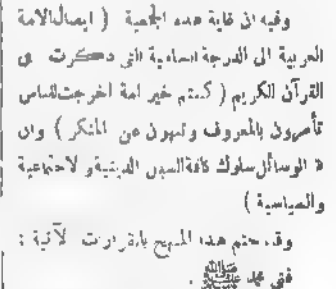 وفيه ان غاية هذه الجمعية ( ايصال الامة
العربية الى الدرجة السامية التي ذكرت في
القرآن الكريم ( كنتم خير امة اخرجت للناس
تأمرون بالمعروف وتنهون عن المنكر ) وان
الوسائل سلوك كافة السبل الدينية والاجتماعية
والسياسية )
وقد ختم هذا المنهج بالقرارات الآتية :
محمد ﷺ .